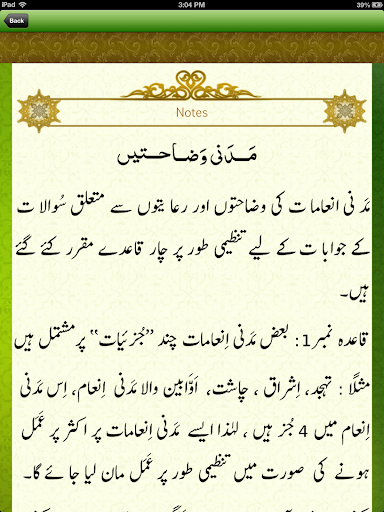 iPad 3:04 PM 39%
Back
Notes
مَدَنی وَضاحتیں
مَدَ نی انعامات کی وضاحتوں اور رعا یتوں سے متعلق سُوالات
کے جوابات کے لیے تنظیمی طور پر چار قاعدے مقرر کئے گئے
ہیں۔
قاعدہ نمبر1: بعض مَدَنی اِنعامات چند ’’جُزئیات‘‘ پرمشتمل ہیں
مثلًا : تہجد، اِشراق ، چاشت، اَوَّابین والا مَدَنی اِنعام، اِس مَدَنی
اِنعام میں 4 جُز ہیں ، لہٰذا ایسے مَدَنی اِنعامات پر اکثر پر عَمَل
ہونے کی صورت میں تنظیمی طور پر عَمَل مان لیا جائے گا۔